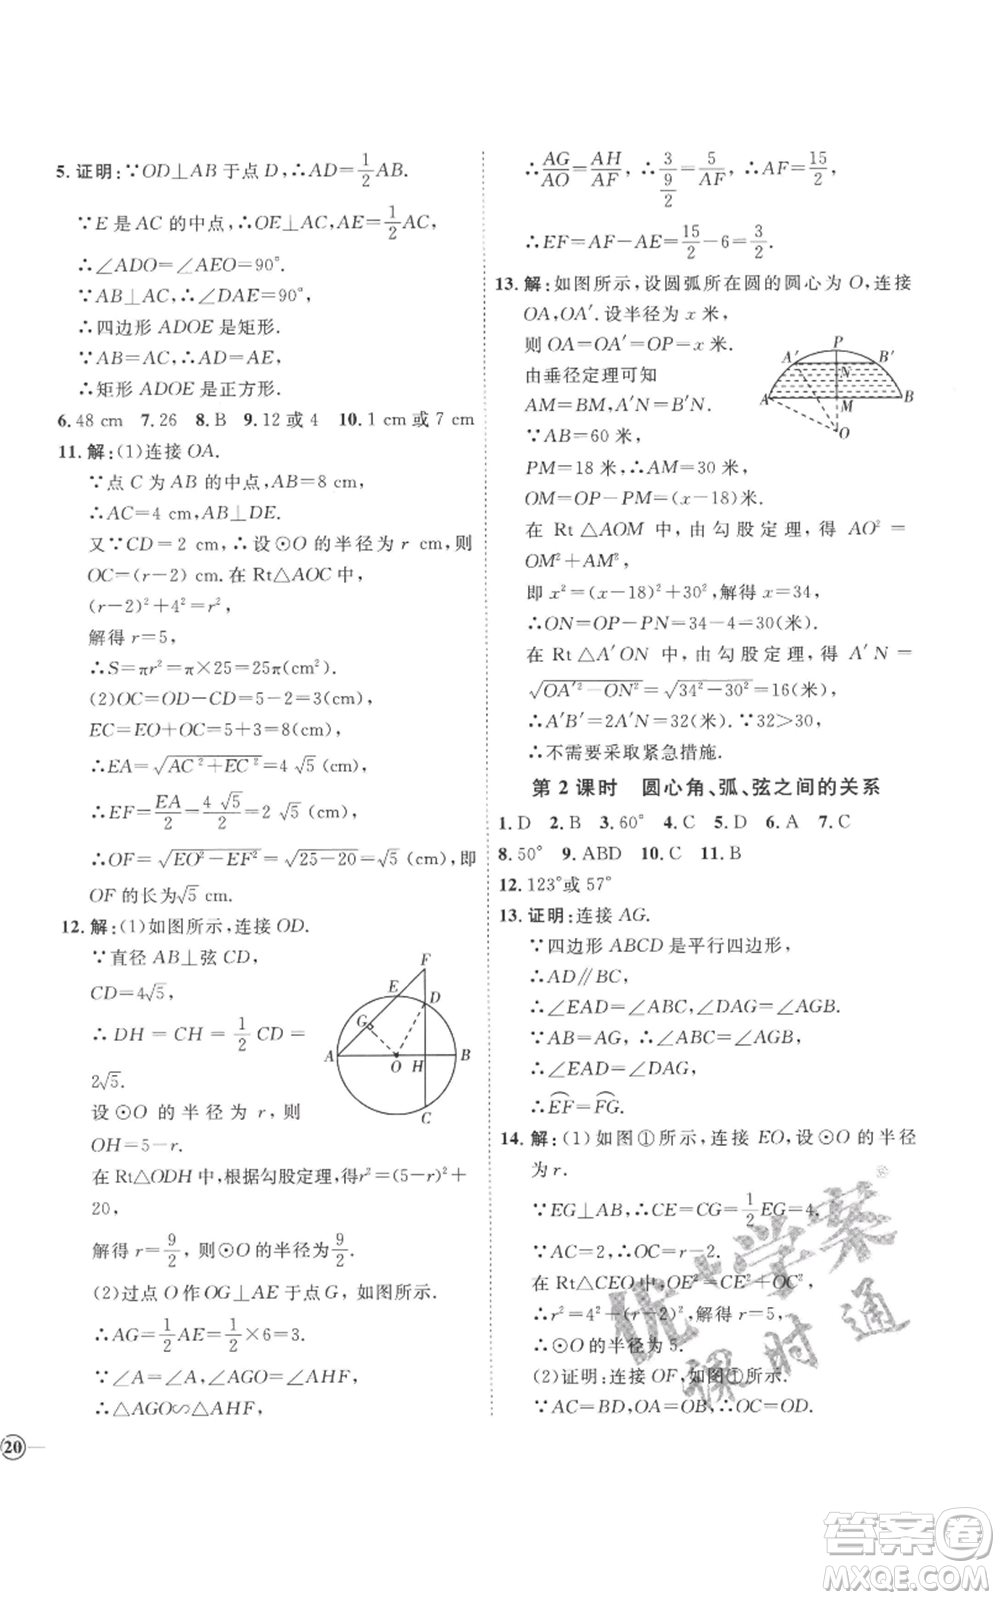 5.证明:∵OD⊥AB于点D,∴AD=1/2AB.
∵E是AC的中点,∴OE⊥AC,AE=1/2AC,
∴∠ADO=∠AEO=90°.
∵AB⊥AC,∴∠DAE=90°,
∴四边形ADOE是矩形.
∵AB=AC,∴AD=AE,
∴矩形ADOE是正方形.
6.48 cm 7.26 8.B 9.12或4 10.1 cm或7 cm
11.解:(1)连接OA.
∵点C为AB的中点,AB=8 cm,
∴AC=4 cm,AB⊥DE.
又∵CD=2 cm,∴设⊙O的半径为r cm,则
OC=(r-2) cm.在Rt△AOC中,
(r-2)²+4²=r²,
解得r=5,
∴S=πr²=π×25=25π(cm²).
(2)OC=OD-CD=5-2=3(cm),
EC=EO+OC=5+3=8(cm),
∴EA=√(AC²+EC²)=4√5(cm),
∴EF=EA/2=4√5/2=2√5(cm),
∴OF=√(EO²-EF²)=√(25-20)=√5(cm),即
OF的长为√5 cm.
12.解:(1)如图所示,连接OD.
∵直径AB⊥弦CD,
CD=4√5,
∴DH=CH=1/2CD=
2√5.
设⊙O的半径为r,则
OH=5-r.
在Rt△ODH中,根据勾股定理,得r²=(5-r)²+
20,
解得r=9/2,则⊙O的半径为9/2.
(2)过点O作OG⊥AE于点G,如图所示.
∴AG=1/2AE=1/2×6=3.
∵∠A=∠A,∠AGO=∠AHF,
∴△AGO∽△AHF,
F
E
D
G
A
O
H
B
C
20
∴AG/AO=AH/AF,∴3/(9/2)=5/AF,∴AF=15/2,
∴EF=AF-AE=15/2-6=3/2.
13.解:如图所示,设圆弧所在圆的圆心为O,连接
OA,OA′.设半径为x米,
则OA=OA′=OP=x米.
由垂径定理可知
AM=BM,A′N=B′N.
∵AB=60米,
PM=18米,∴AM=30米,
OM=OP-PM=(x-18)米.
P
A′
B′
N
A
M
B
O
在Rt△AOM中,由勾股定理,得AO²=
OM²+AM²,
即x²=(x-18)²+30²,解得x=34,
∴ON=OP-PN=34-4=30(米).
在Rt△A′ON中,由勾股定理,得A′N=
√(OA′²-ON²)=√(34²-30²)=16(米),
∴A′B′=2A′N=32(米).∵32>30,
∴不需要采取紧急措施.
第2课时 圆心角、弧、弦之间的关系
1.D 2.B 3.60° 4.C 5.D 6.A 7.C
8.50° 9.ABD 10.C 11.B
12.123°或57°
13.证明:连接AG.
∵四边形ABCD是平行四边形,
∴AD∥BC,
∴∠EAD=∠ABC,∠DAG=∠AGB.
∵AB=AG,∴∠ABC=∠AGB,
∴∠EAD=∠DAG,
∴E͡F=F͡G.
14.解:(1)如图①所示,连接EO,设⊙O的半径
为r.
∵EG⊥AB,∴CE=CG=1/2EG=4.
∵AC=2,∴CO=r-2.
在Rt△CEO中,OE²=CE²+OC²,
∴r²=4²+(r-2)²,解得r=5,
∴⊙O的半径为5.
(2)证明:连接OF,如图①所示.
∵AC=BD,OA=OB,∴OC=OD.
优+学案
课时通
答案圈
MXQE.COM